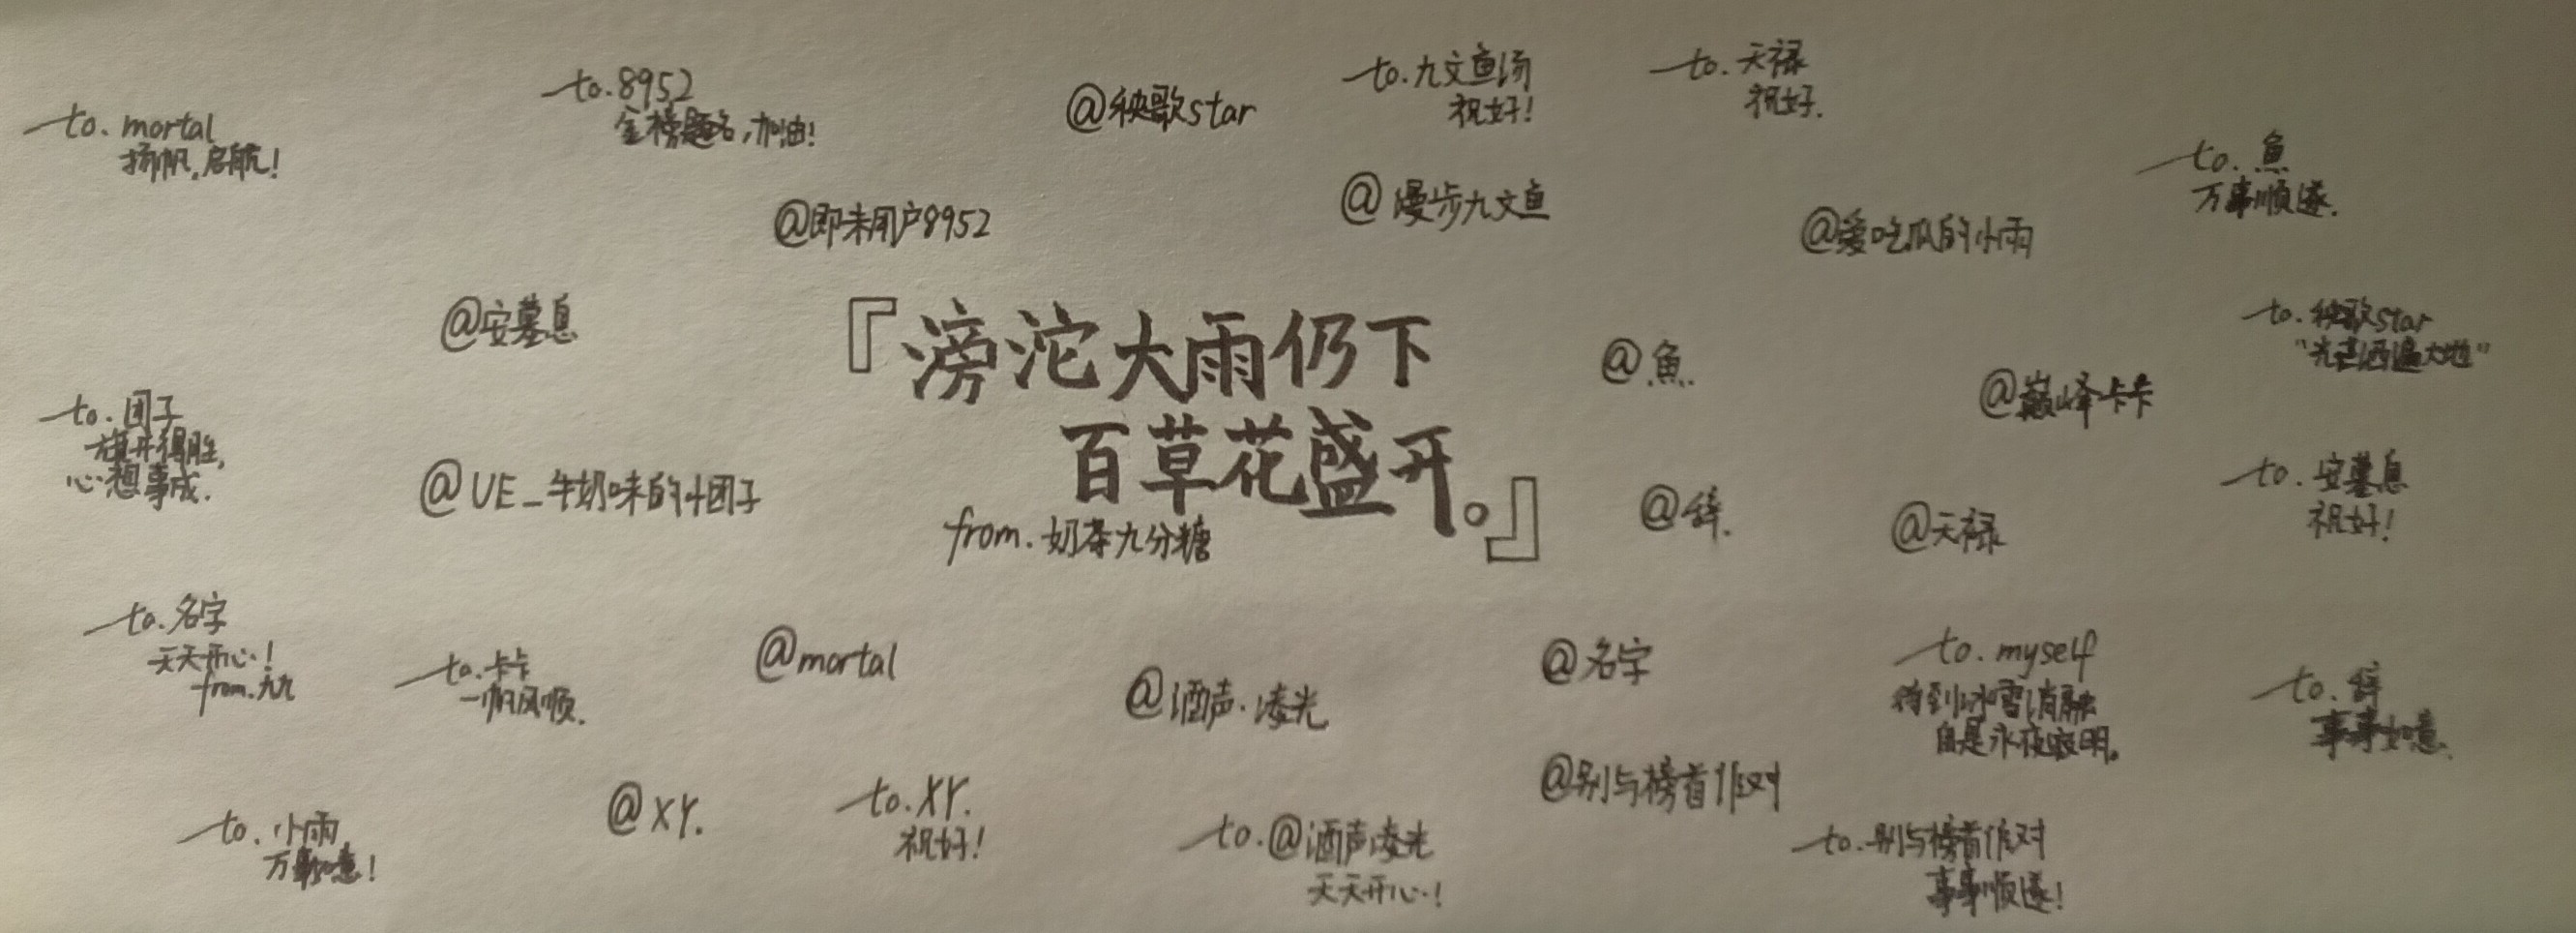 to. mortal
扬帆.启航!
to. 8952
金榜题名,加油!
@秧歌star
to. 九文鱼汤
祝好!
to. 天禄
祝好.
to. 魚
万事顺遂.
@即未用户8952
@漫步九文鱼
@爱吃瓜的小雨
@安墓息
『滂沱大雨仍下
百草花盛开。』
from. 奶茶九分糖
@魚.
@巅峰卡卡
to. 秧歌star
“光芒洒遍大地”
to. 团子
旗开得胜,
心想事成.
@UE_牛奶味的小团子
@辞.
@天禄
to. 安墓息
祝好!
to. 名字
天天开心!
from. 九九
to. 卡卡
一帆风顺.
@mortal
@酒声·凌光
@名字
to. myself
待到冰雪消融
自是永夜寂明。
to. 辞
事事如意.
to. 小雨
万事如意!
@XY.
to. XY.
祝好!
to. @酒声凌光
天天开心!
@别与榜首作对
to. 别与榜首作对
事事顺遂!